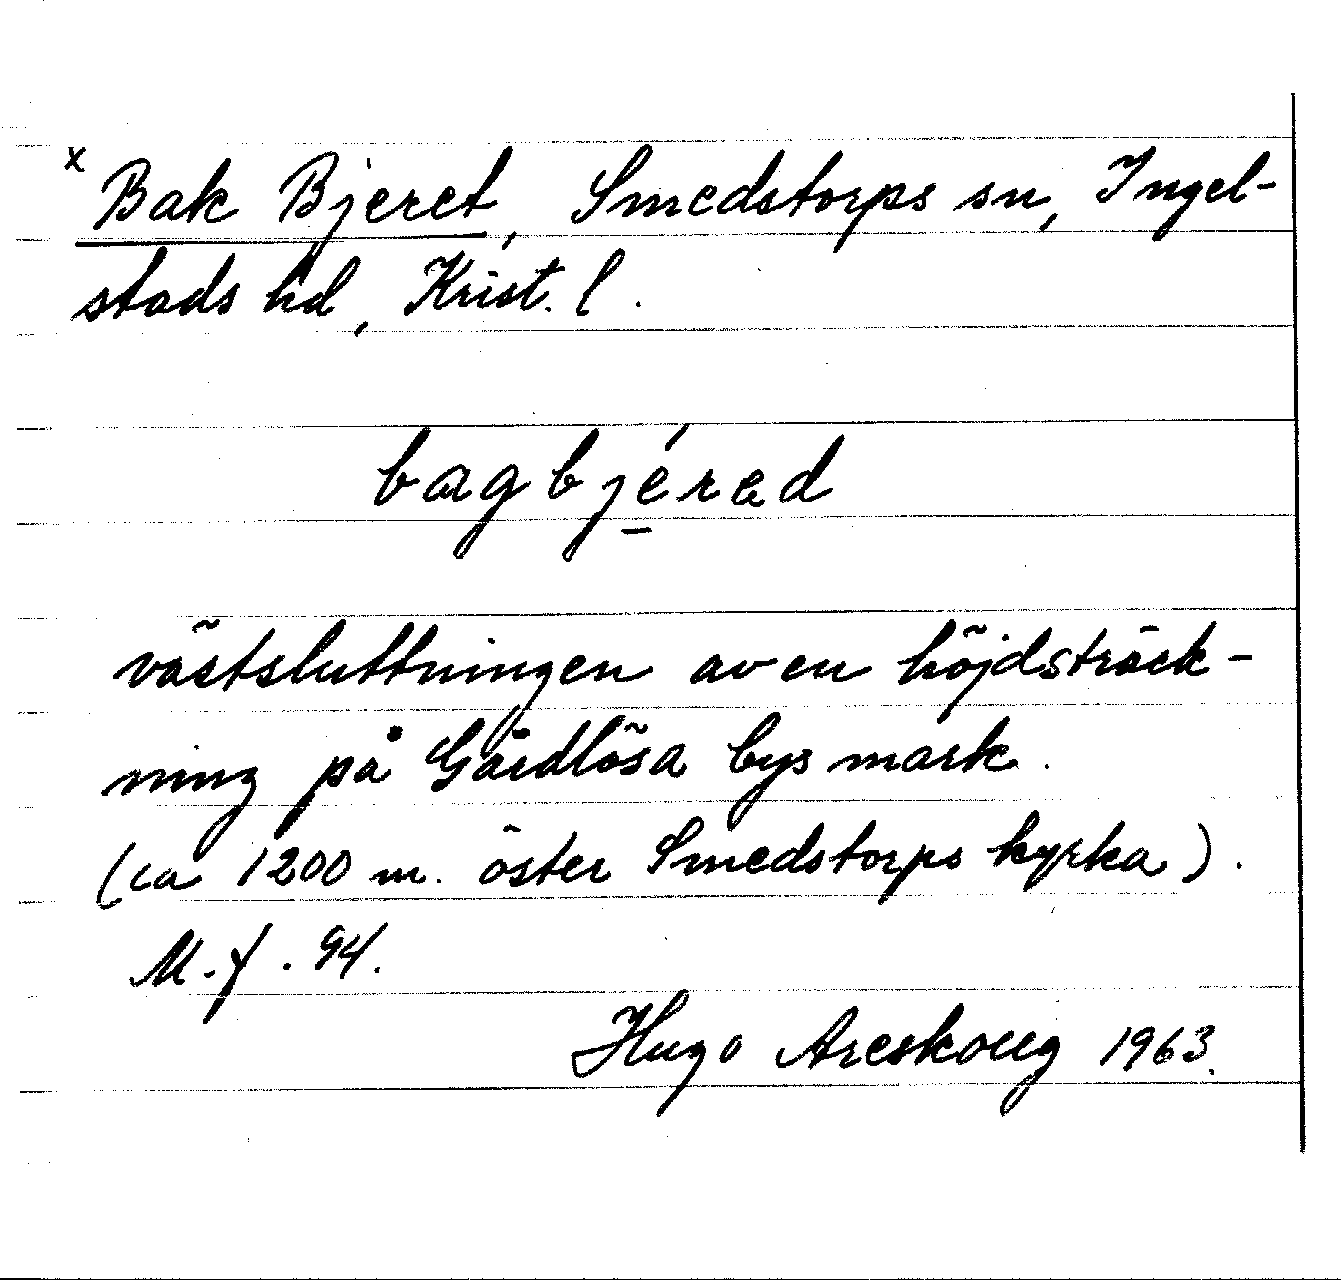 x Bak Bjeret, Smedstorps sn, Ingel-
stads hd, Krist. l.
bagbjérad
västsluttningen av en höjdsträck-
ning på Gårdlösa bys mark.
(ca 1200 m. öster Smedstorps kyrka).
M.f. 94.
Hugo Areskoug 1963.